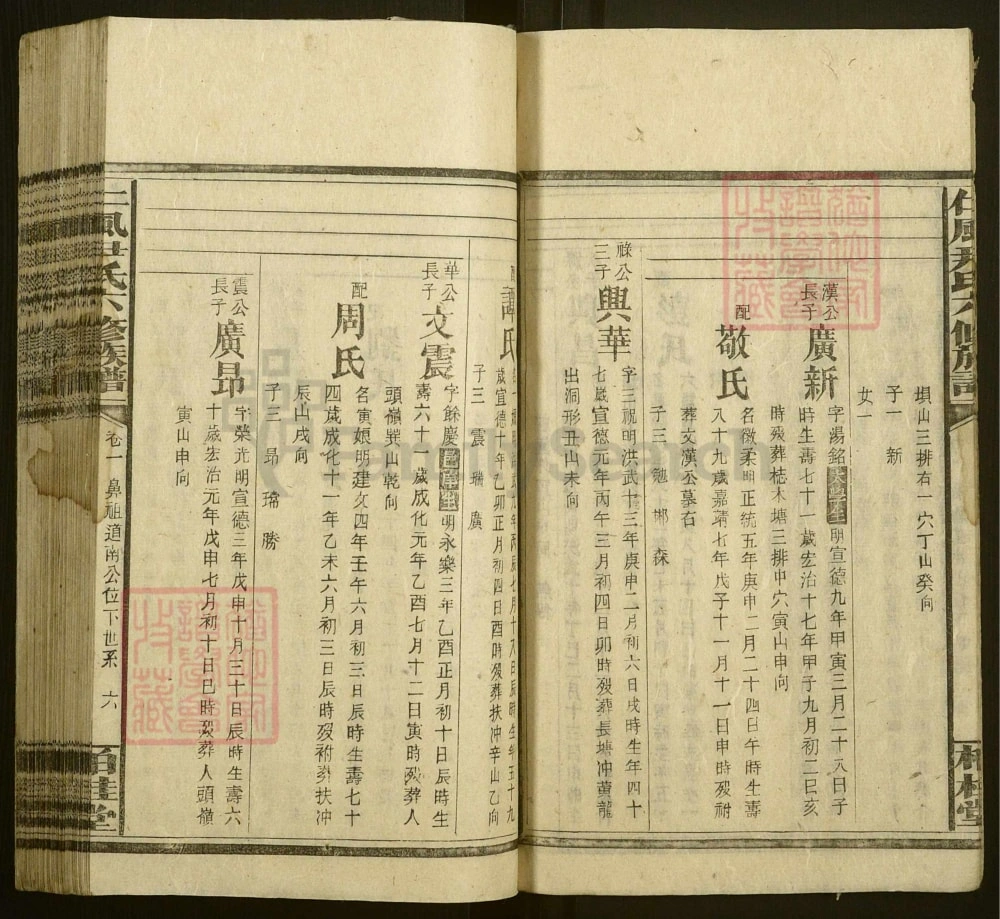 塤山三排右一穴丁山癸向
子一 新
女一
漢公長子
廣新
字湯銘太學生明宣德九年甲寅三月二十八日子
時生壽七十一歲宏治十七年甲子九月初二日亥
時歿葬梽木塘三排中穴寅山申向
配
敬氏
名徽柔明正統五年庚申二月二十四日午時生壽
八十九歲嘉靖七年戊子十一月十一日申時歿祔
葬文漢公墓右
子三 勉 郴 森
祿公三子
興華
字三祝明洪武十三年庚申二月初六日戌時生年四十
七歲宣德元年丙午三月初四日卯時歿葬長塘冲黃龍
出洞形丑山未向
配
歲宣德十年乙卯正月初四日酉時歿葬扶冲辛山乙向
子三 震 瑞 廣
華公長子
文震
字餘慶邑庠生明永樂三年乙酉正月初十日辰時生
壽六十一歲成化元年乙酉七月十二日寅時歿葬人
頭嶺巽山乾向
配
周氏
名寅娘明建文四年壬午六月初三日辰時生壽七十
四歲成化十一年乙未六月初三日辰時歿祔葬扶冲
辰山戌向
子三 昻 瑞 勝
震公長子
廣昻
字榮光明宣德三年戊申十月三十日辰時生壽六
十歲宏治元年戊申七月初十日巳時歿葬人頭嶺
寅山申向
氏六修族譜
卷一 鼻祖道南公位下世系 六
桂堂